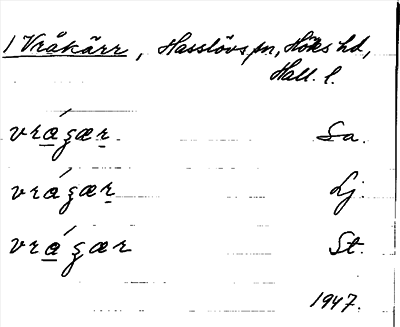 1 Vråkärr, Hasslövs sn, Höks hd,
Hall. l.
vrágær. Sa.
vrágær Lj.
vrágær St.
1947.